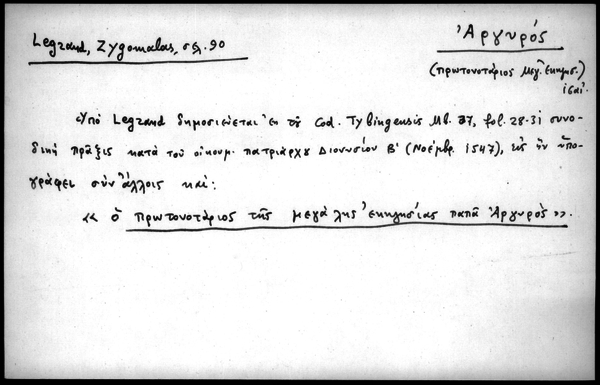 Legrand, Zygomalas, σελ. 90
Ἀργυρός
(πρωτονοτάριος Μεγ. Ἐκκλησ.)
ις΄ αἰ.
Ὑπὸ Legrand δημοσιεύεται ἐκ τοῦ Cod. Tybingensis Mb. 37, fol. 28-31 συνο-
δικὴ πρᾶξις κατὰ τοῦ οἰκουμ. πατριάρχου Διονυσίου Β΄ (Νοέμβρ. 1547), εἰς ἣν ὑπο-
γράφει σὺν ἄλλοις καί:
«ὁ πρωτονοτάριος τῆς μεγάλης ἐκκλησίας παπᾶ Ἀργυρός».